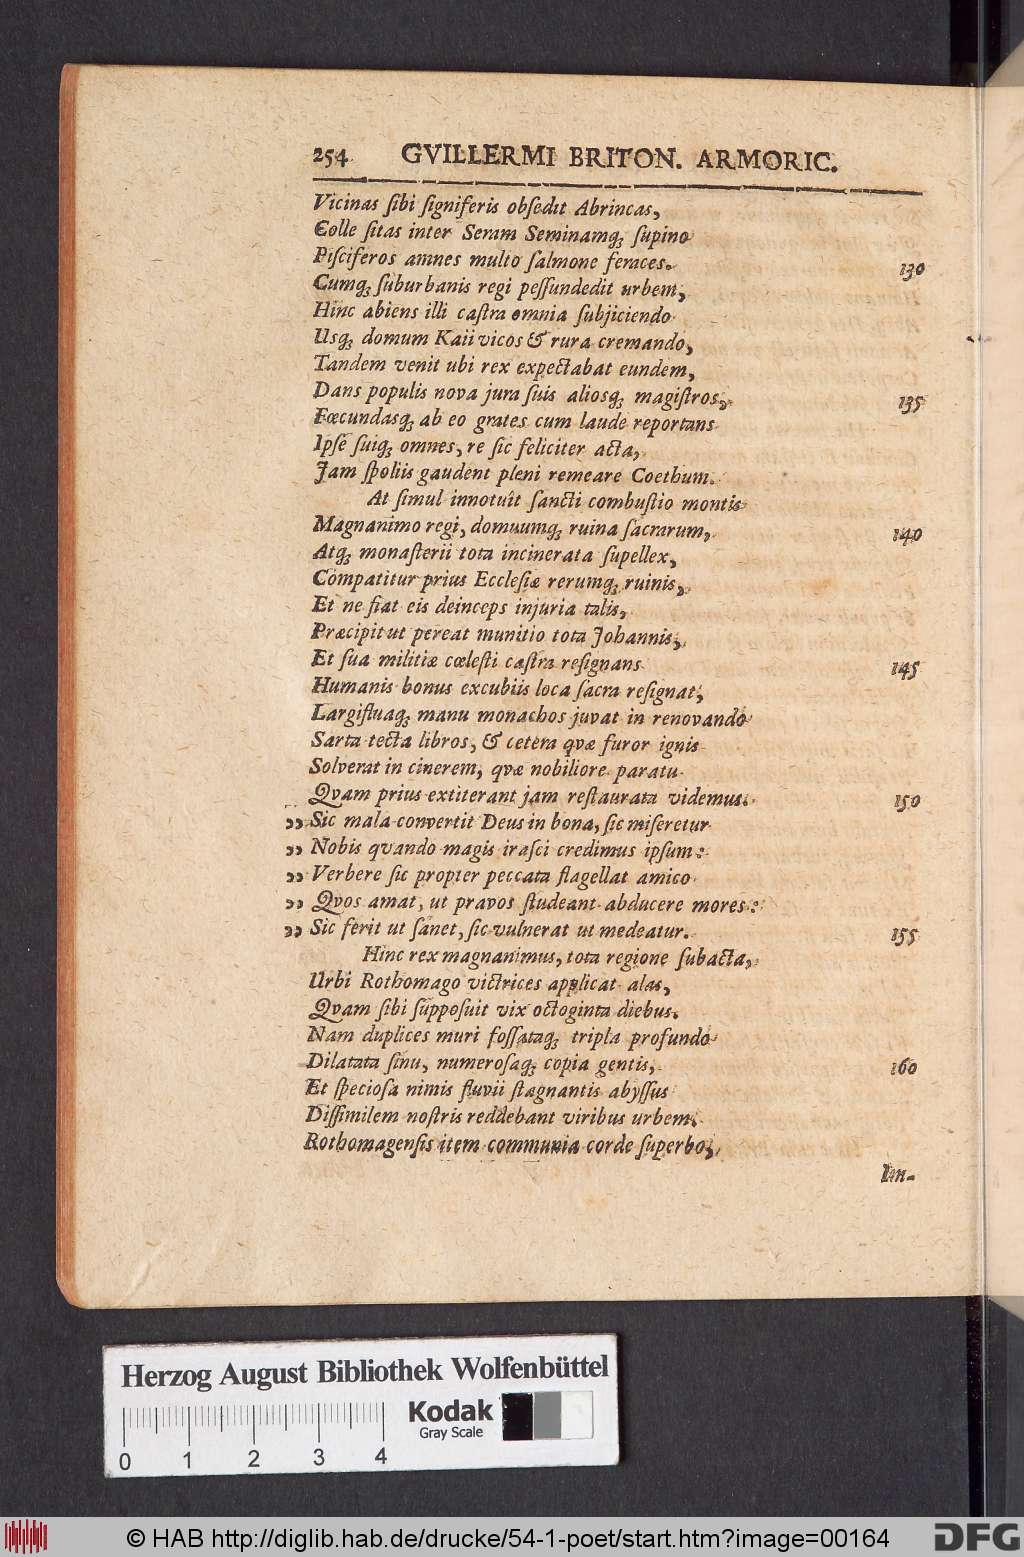 254 GVILLERMI BRITON. ARMORIC.
Vicinas sibi signiferis obsedit Abrincas,
Colle sitas inter Seram Seminamq; supino
Pisciferos amnes multo salmone feraces. 130
Cumq; suburbanis regi pessundedit urbem,
Hinc abiens illi castra omnia subjiciendo
Usq; domum Kaii vicos & rura cremando,
Tandem venit ubi rex expectabat eundem,
Dans populis nova jura suis aliosq; magistros, 135
Fœcundasq; ab eo grates cum laude reportans
Ipse suiq; omnes, re sic feliciter acta,
Jam spoliis gaudent pleni remeare Coethum.
At simul innotuit sancti combustio montis
Magnanimo regi, domuumq; ruina sacrarum, 140
Atq; monasterii tota incinerata supellex,
Compatitur prius Ecclesiæ rerumq; ruinis,
Et ne fiat eis deinceps injuria talis,
Præcipit ut pereat munitio tota Johannis,
Et sua militiæ cœlesti castra resignans 145
Humanis bonus excubiis loca sacra resignat,
Largifluaq; manu monachos juvat in renovando
Sarta tecta libros, & cetera qvæ furor ignis
Solverat in cinerem, qvæ nobiliore paratu
Qvam prius extiterant jam restaurata videmus. 150
„ Sic mala convertit Deus in bona, sic miseretur
„ Nobis qvando magis irasci credimus ipsum:
„ Verbere sic propter peccata flagellat amico
„ Qvos amat, ut pravos studeant abducere mores:
„ Sic ferit ut sanet, sic vulnerat ut medeatur. 155
Hinc rex magnanimus, tota regione subacta,
Urbi Rothomago victrices applicat alas,
Qvam sibi supposuit vix octoginta diebus.
Nam duplices muri fossataq; tripla profundo
Dilatata sinu, numerosaq; copia gentis, 160
Et speciosa nimis fluvii stagnantis abyssus
Dissimilem nostris reddebant viribus urbem.
Rothomagensis item communia corde superbo,
Im-
Herzog August Bibliothek Wolfenbüttel
Kodak
Gray Scale
0 1 2 3 4
© HAB http://diglib.hab.de/drucke/54-1-poet/start.htm?image=00164
DFG